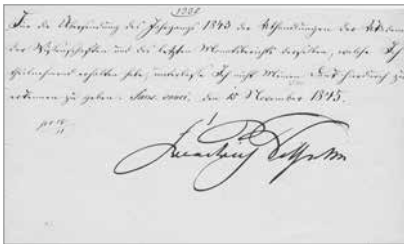 1228
Für die Übersendung des Jahrgangs 1843 der Abhandlungen der Akademie
der Wissenschaften und der letzten Monatsberichte derselben, welche Ich
theilnehmend erhalten habe, unterlasse Ich nicht Meinen Dank hierdurch zu
erkennen zu geben. Sans-souci, den 15 November 1845.
Friedrich Wilhelm